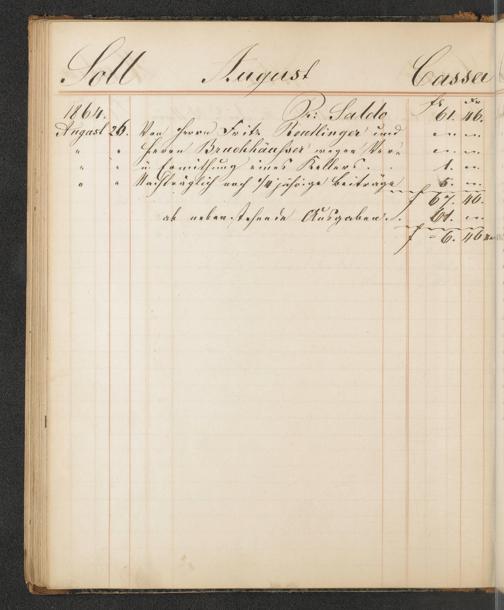 Soll August Cassa
fl. Xr.
1864. Pr: Saldo 61. 46.
August 26. Von Herrn Fritz Reutlinger und " "
" " Herrn Bruchhäußer wegen Ver= " "
" " miethung eines Kellers. 1. "
" " Nachträglich noch 1/4 jährige Beiträge 5. "
f 67. 46.
ab nebenstehende Ausgaben. 61. "
f = 6. 46